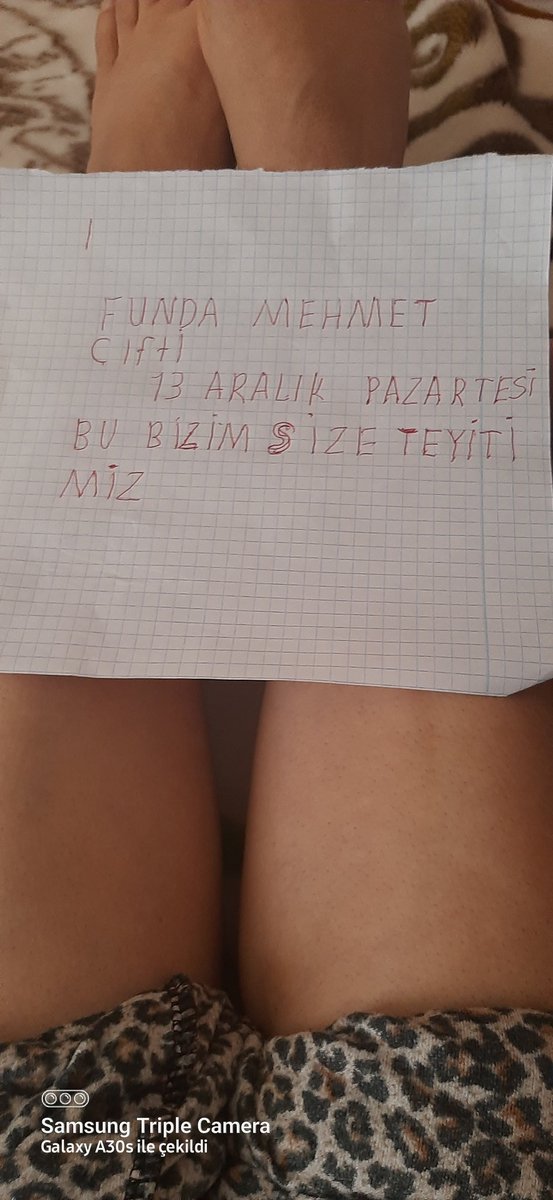 FUNDA MEHMET
Çifti
13 ARALIK PAZARTESİ
BU BİZİM SİZE TEYİTİ
MİZ
Samsung Triple Camera
Galaxy A30s ile çekildi